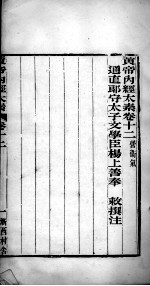 黃帝內經太素卷十二 營衛氣
通直郎守太子文學臣楊上善奉 敕撰注